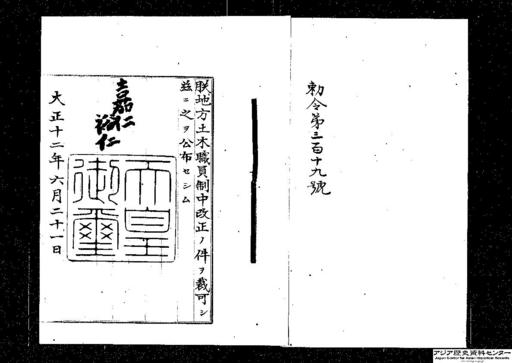 勅令第三百十九號
朕地方土木職員制中改正ノ件ヲ裁可シ
茲ニ之ヲ公布セシム
嘉仁
裕仁
天皇
御璽
大正十二年六月二十一日
アジア歴史資料センター
Japan Center for Asian Historical Records